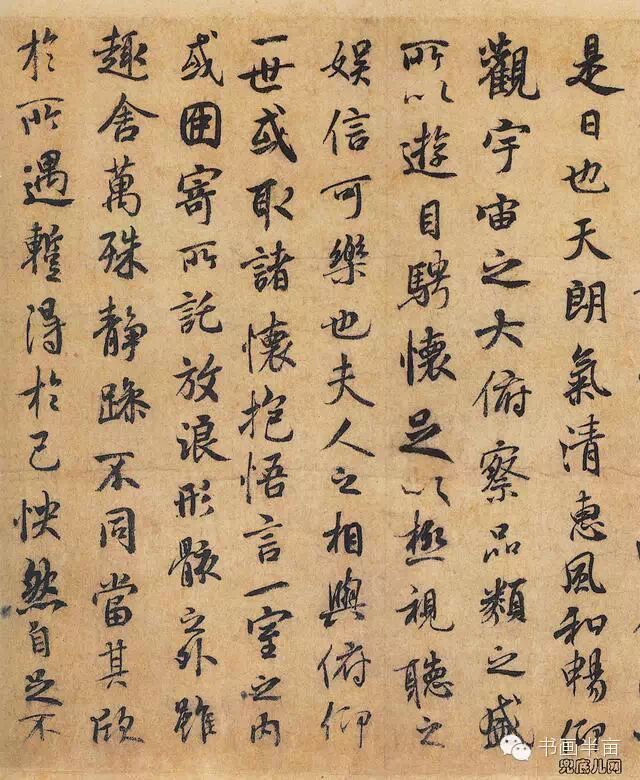 是日也天朗氣清惠風和暢仰
觀宇宙之大俯察品類之盛
所以遊目騁懷足以極視聽之
娛信可樂也夫人之相與俯仰
一世或取諸懷抱悟言一室之內
或因寄所託放浪形骸之外雖
趣舍萬殊靜躁不同當其欣
於所遇蹔得於己怏然自足不
书画半亩
兜底儿网